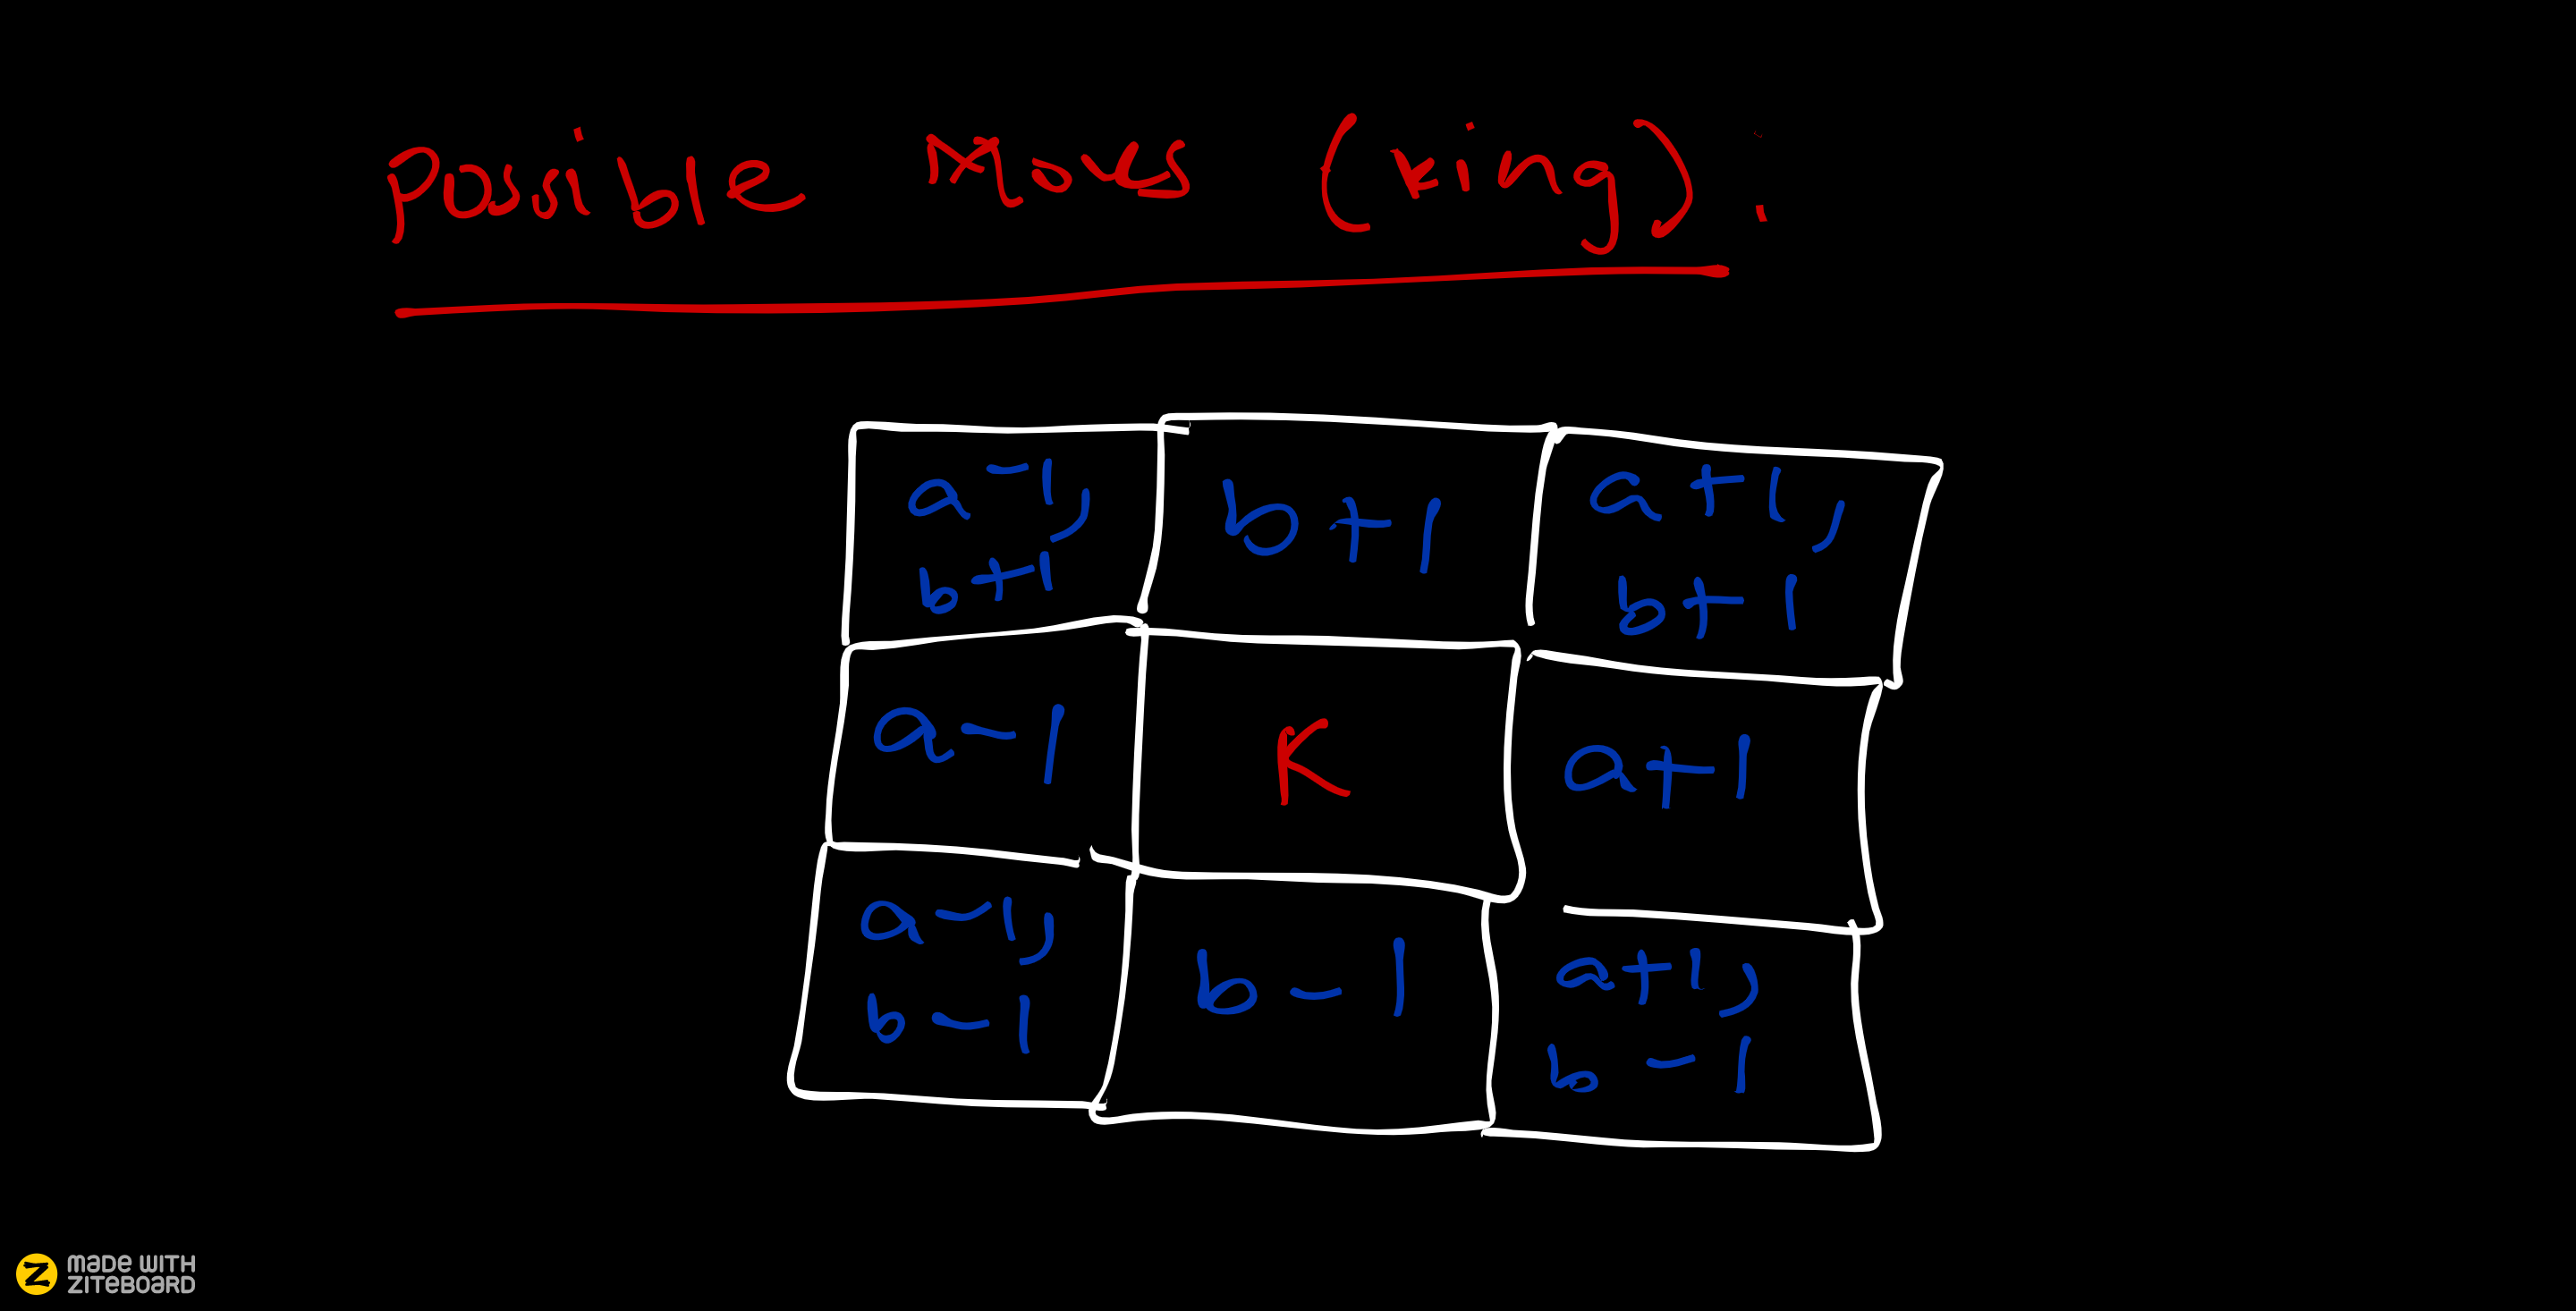 Possible Moves (king):
a-1, b+1 a+1,
b+1 b+1
a-1 K a+1
a-1, b-1 a+1,
b-1 b-1
MADE WITH
ZITEBOARD